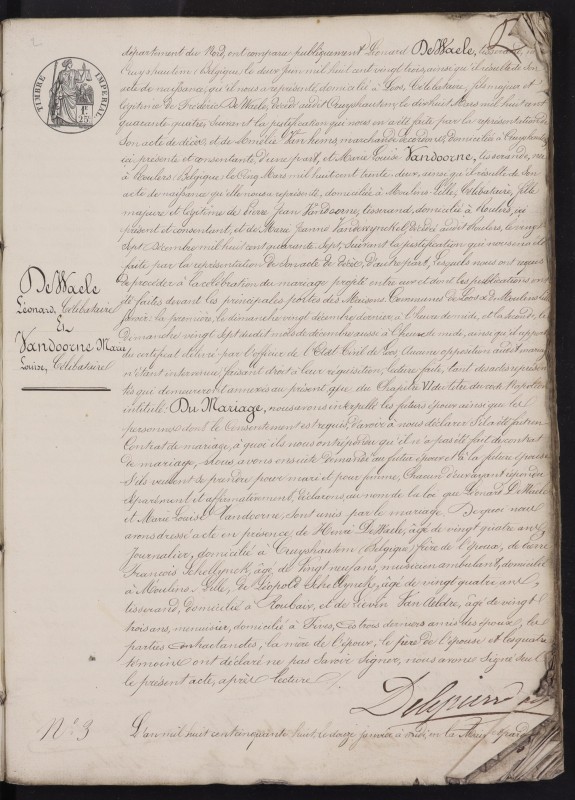 TIMBRE IMPÉRIAL
département du Nord, ont comparu publiquement Léonard DeWaele, tisserand, né
à Cruyshautem (Belgique) le deux juin mil huit cent vingt trois, ainsi qu'il résulte de son
acte de naissance, qu'il nous a représenté, domicilié à Loos, Célibataire, fils majeur et
légitime de Frédéric DeWaele, décédé audit Cruyshautem, le dix huit Mars mil huit cent
quarante quatre, suivant la justification qui nous en a été faite par la représentation de
son acte de décès, et de Amélie marchande domiciliée à Cruyshautem
ici présente et consentante, d'une part, et Marie Louise Vandoorne, tisserande, née
à Roulers (Belgique) le Cinq Mars mil huit cent trente deux, ainsi qu'il résulte de son
acte de naissance qu'elle nous a représenté, domiciliée à Moulins-Lille, Célibataire, fille
majeure et légitime de Pierre Jean Vandoorne, tisserand, domicilié à Roulers, ici
présent et consentant, et de Marie Jeanne décédée audit Roulers, le vingt
sept Décembre mil huit cent quarante sept, suivant la justification qui nous en a été
faite par la représentation de son acte de décès, d'autre part, lesquels nous ont requis
de procéder à la célébration du mariage projeté entre eux et dont les publications ont
été faites devant les principales portes des Maisons Communes de Loos & de Moulins-Lille
savoir: la première, le dimanche vingt décembre dernier à l'heure de midi, et la seconde, le
Dimanche vingt sept dudit mois de décembre aussi à l'heure de midi, ainsi qu'il appert
du certificat délivré par l'officier de l'Etat Civil de Loos, Aucune opposition audit mariage
n'étant intervenue, faisant droit à leur réquisition, lecture faite, tant desdites représen-
tés qui demeureront annexés au présent, que du Chapitre VI du titre du code Napoléon
intitulé: Du Mariage, nous avons interpellé les futurs époux ainsi que les
personnes dont le consentement est requis, d'avoir à nous déclarer s'il a été fait un
Contrat de mariage, à quoi ils nous ont répondu qu'il n'a pas été fait de contrat
de mariage, & nous avons ensuite demandé au futur époux et à la future épouse
s'ils veulent se prendre pour mari et pour femme, Chacun d'eux ayant répondu
séparément et affirmativement, déclarons, au nom de la loi que Léonard DeWaele
et Marie Louise Vandoorne, sont unis par le mariage. De quoi nous
avons dressé acte en présence de Henri DeWaele, âgé de vingt quatre ans,
Journalier, domicilié à Cruyshautem (Belgique) frère de l'époux, de
François Schellynck, âgé de Vingt neuf ans, musicien ambulant, domicilié
à Moulins-Lille, de Léopold Schellynck, âgé de vingt quatre ans,
tisserand, domicilié à Roubaix, et de Lievin Van Aelder, âgé de vingt
trois ans, menuisier, domicilié à Fives, ces trois derniers amis des époux, les
parties contractantes, la mère de l'époux, le père de l'épouse et les quatre
témoins ont déclaré ne pas savoir signer, nous avons signé seul
le présent acte, après lecture ./.
DeWaele
Léonard, Célibataire
Et
Vandoorne Marie
Louise, Célibataire
N° 3
L'an mil huit cent cinquante huit, le douze janvier à